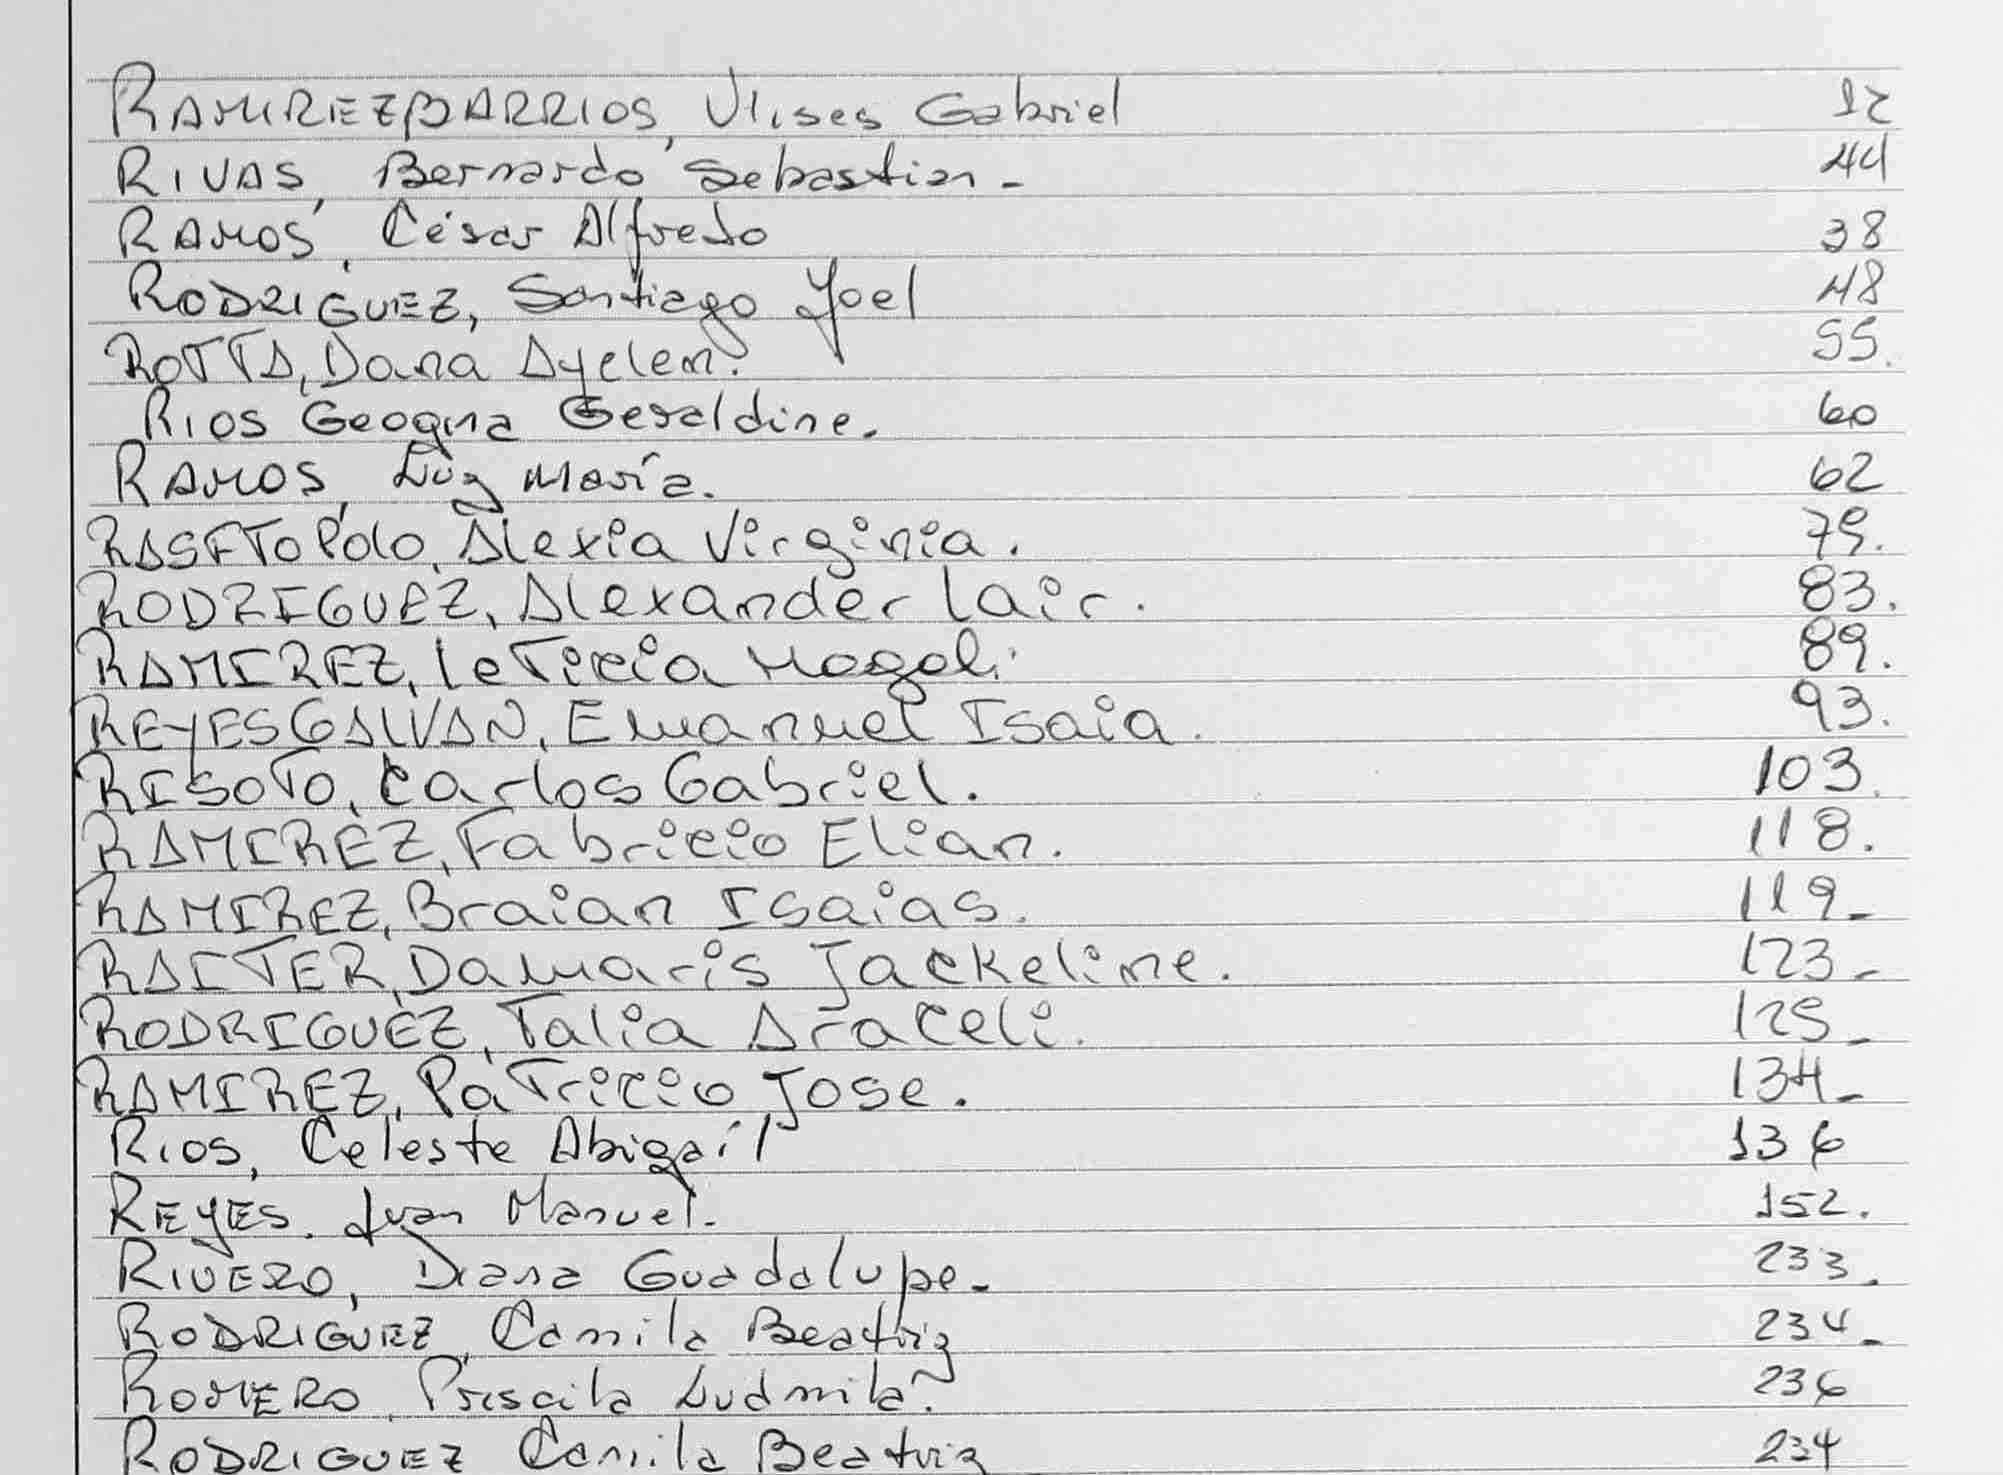 RAMIREZ BARRIOS, Ulises Gabriel 12
RIVAS, Bernardo Sebastian - 44
RAMOS, César Alfredo 38
RODRIGUEZ, Santiago Joel 48
ROTTA, Dana Ayelen. 55.
RIOS Geogina Geraldine. 60
RAMOS, Luz María. 62
RASFTOPOLO, Alexia Virginia. 79.
RODRIGUEZ, Alexander Iair. 83.
RAMIREZ, Leticia Magali 89.
REYES GALVAN, Emanuel Isaia. 93.
RISOTO, Carlos Gabriel. 103.
RAMIREZ, Fabricio Elian. 118.
RAMIREZ, Braian Isaias. 119-
RAITER, Damaris Jackeline. 123-
RODRIGUEZ, Talia Araceli. 125-
RAMIREZ, Patricio Jose. 134-
RIOS, Celeste Abigaíl 136
REYES. Juan Manuel. 152.
RIVERO, Diana Guadalupe- 233.
RODRIGUEZ, Camila Beatriz 234-
ROMERO, Priscila Ludmila. 236
RODRIGUEZ Camila Beatriz 234